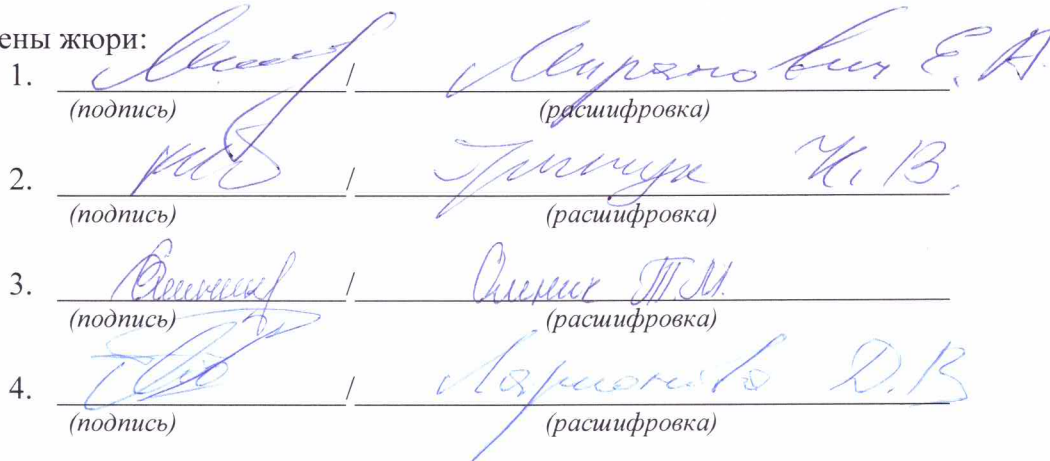 ены жюри:
1. / Миранович Е.А.
(подпись) (расшифровка)
2. / Гринчук Н.В.
(подпись) (расшифровка)
3. / Олинич Т.М.
(подпись) (расшифровка)
4. / Ларионова Д.В
(подпись) (расшифровка)